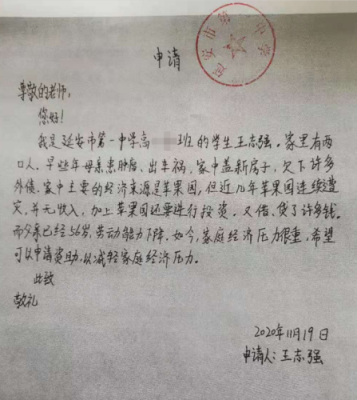 延安市第一中学
申请
尊敬的老师:
您好!
我是延安市第一中学高 班的学生王志强。家里有两
口人,早些年母亲患肿瘤,出车祸,家中盖新房子,欠下许多
外债,家中主要的经济来源是苹果园,但近几年苹果园连续遭
灾,并无收入,加上苹果园还要进行投资,又借、贷了许多钱。
而父亲已经56岁,劳动能力下降。如今,家庭经济压力很重,希望
可以申请资助,以减轻家庭经济压力。
此致
敬礼
2020年11月19日
申请人:王志强